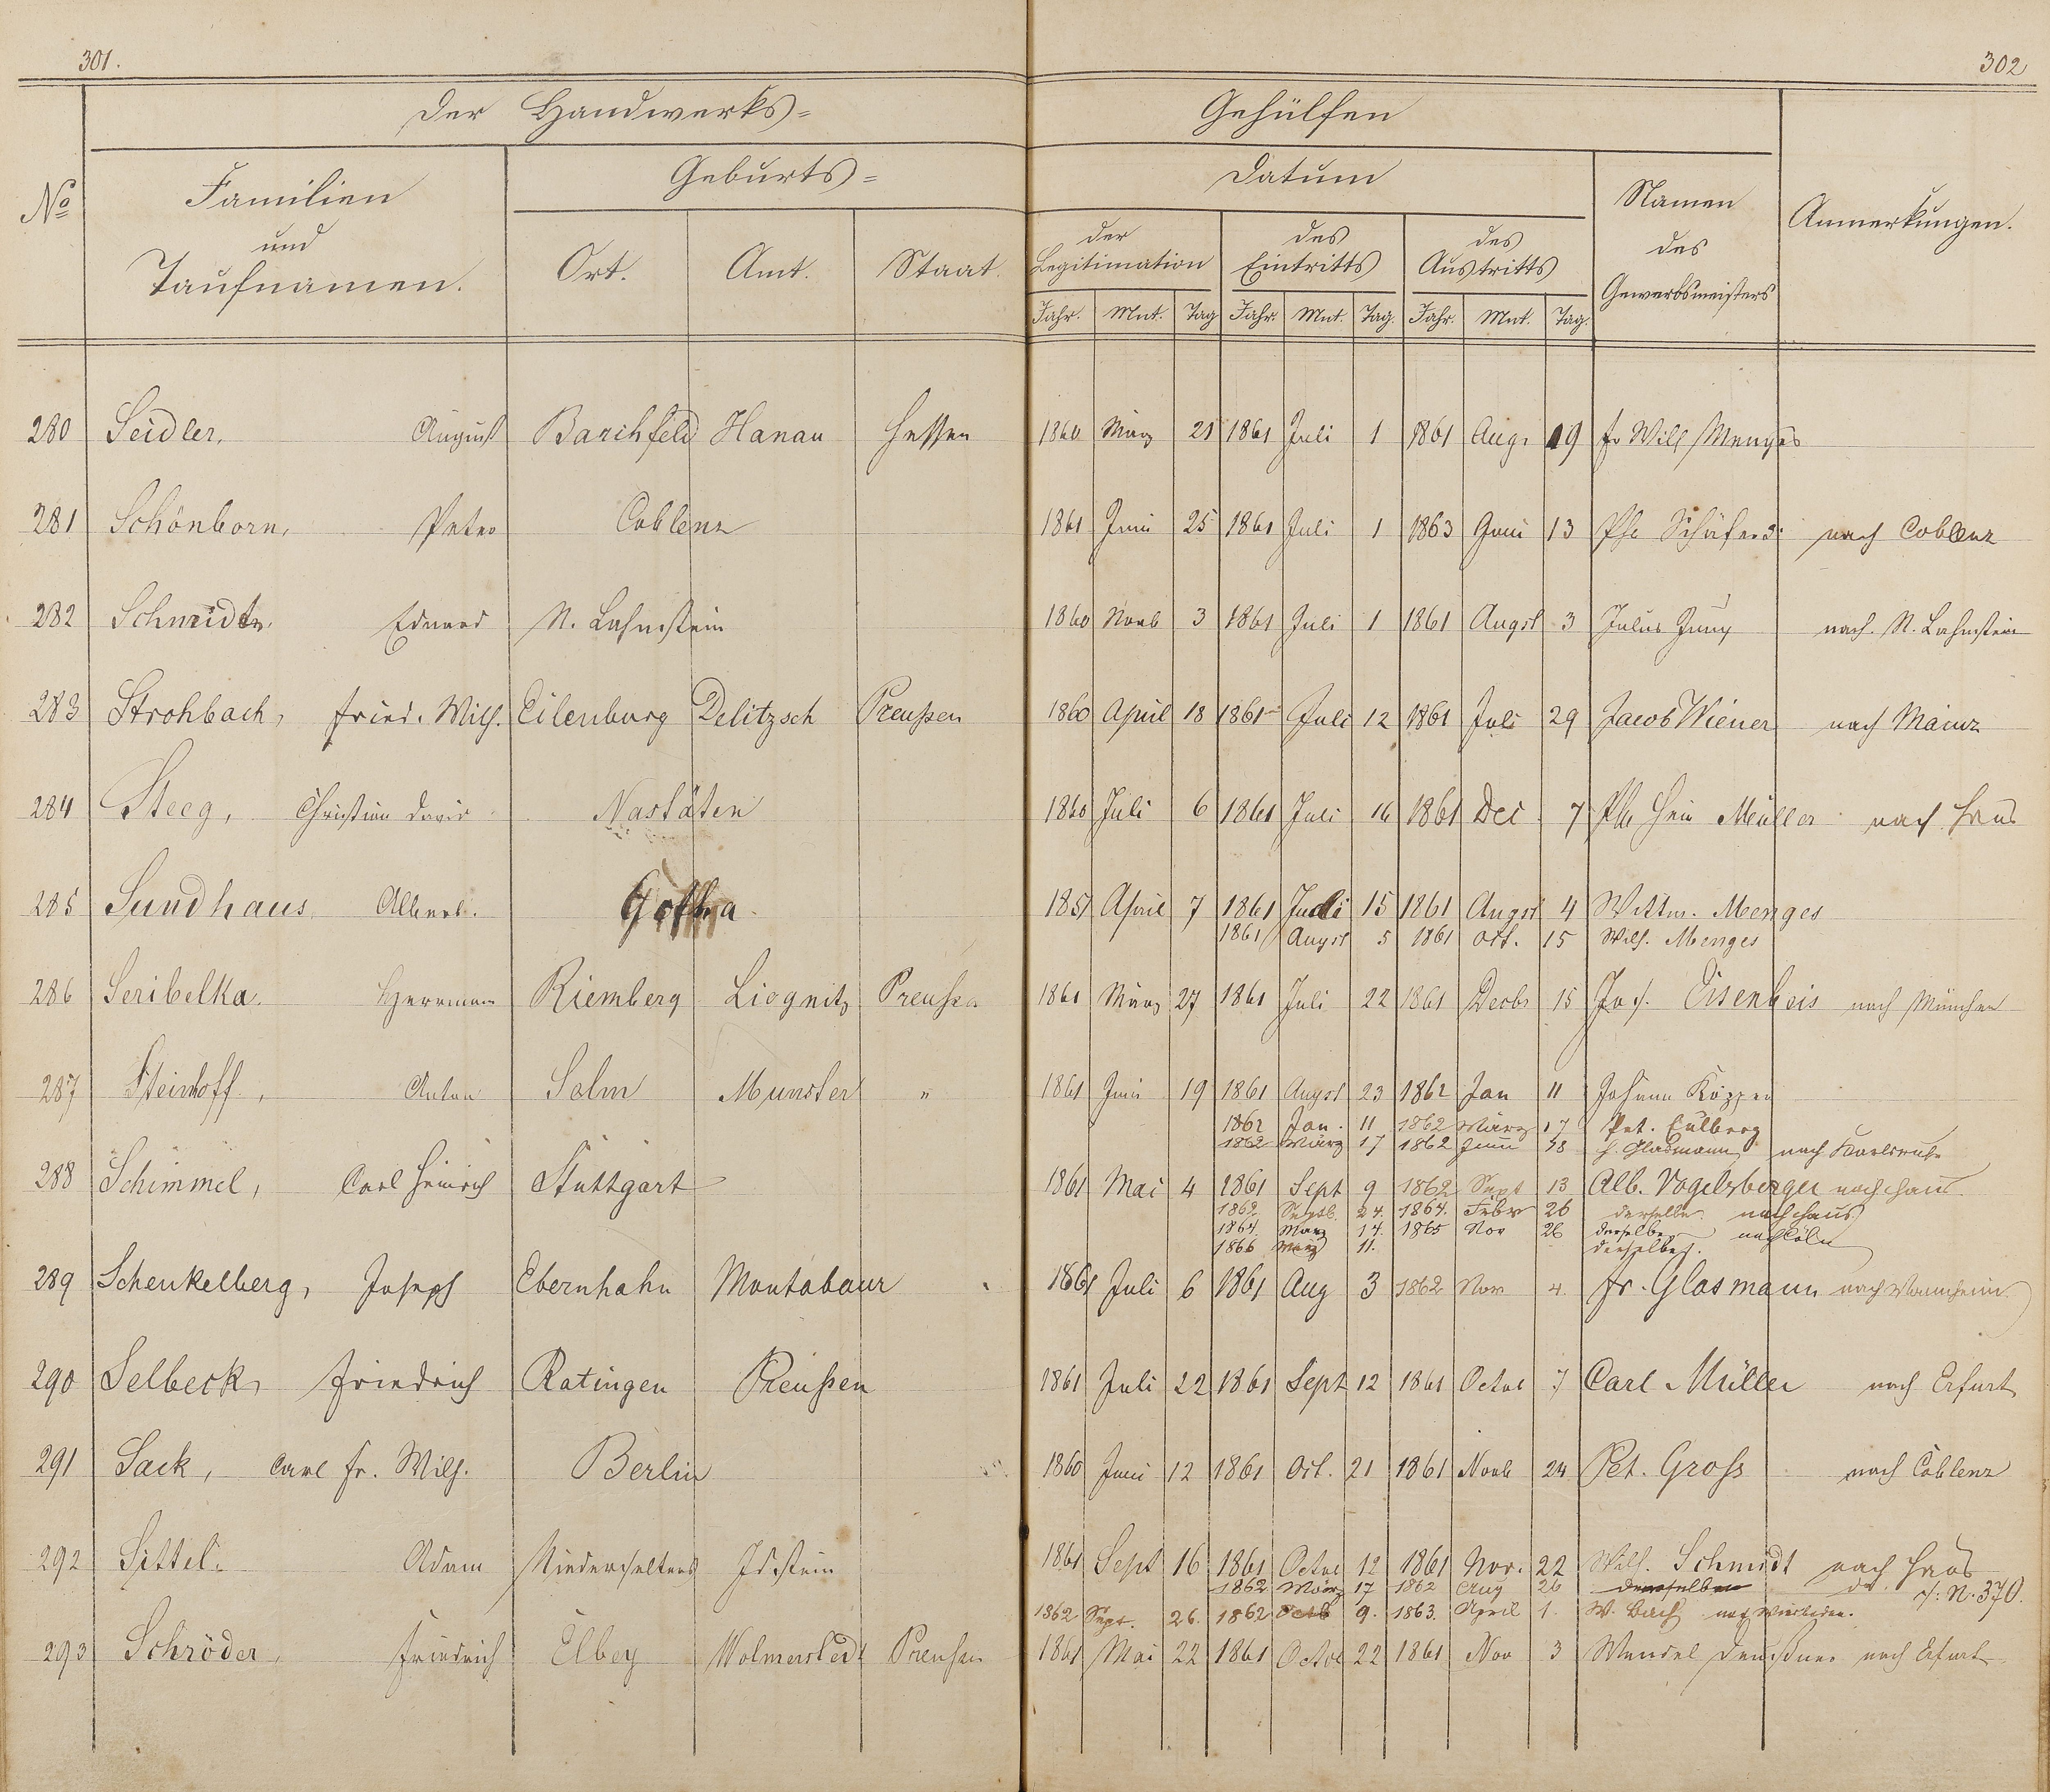 301.
302
Der Handwerks=
Gehülfen
No
Familien
und
Taufnamen.
Geburts=
Ort.
Amt.
Staat.
Datum
der
Legitimation
des
Eintritts
des
Austritts
Jahr. Mnt. Tag Jahr. Mnt. Tag. Jahr. Mnt. Tag.
Namen
des
Gewerbsmeisters
Anmerkungen.
280 Seidler, August Barchfeld Hanau Hessen 1860 März 21 1861 Juli 1 1861 Aug. 19 Fr Wilh Menges
281 Schönborn, Peter Coblenz 1861 Juni 25 1861 Juli 1 1863 Juni 13 Ph. Schäfer nach Coblenz
282 Schmidt, Eduard N. Lahnstein 1860 Novb 3 1861 Juli 1 1861 Augst 3 Julius Jung nach N. Lahnstein
283 Strohbach, Fried. Wilh. Eilenburg Delitzsch Preußen 1860 April 18 1861 Juli 12 1861 Juli 29 Jacob Wiener nach Mainz
284 Steeg, Christian David Nastäten 1860 Juli 6 1861 Juli 16 1861 Dec 7 Ph Hein Müller nach Haus
285 Sundhaus, Albert. Gotha 1851 April 7 1861 Juli 15 1861 Augst 4 Wittw. Menges
1861 Augst 5 1861 Oct. 15 Wilh. Menges
286 Seribelka. Herrmann Riemberg Liegnitz Preußen 1861 März 27 1861 Juli 22 1861 Decbr 15 Jos. Eisenbeis nach München
287 Steinhoff, Anton Solm Munster " 1861 Juni 19 1861 Augst 23 1862 Jan 11 Johann Köppen
1862 Jan. 11 1862 März 17 Pet. Eulberg
1862 März 17 1862 Juni 18 H. Glasmann nach Karlsruhe
288 Schimmel, Carl Heinrich Stuttgart 1861 Mai 4 1861 Sept 9 1862 Sept 13 Alb. Vogelsberger nach Haus
1862 Septb. 24. 1864. Febr 26 derselbe nach Haus
1864. März 14. 1865 Nov 26 derselbe nach Cöln
1866 März 11. derselbe.
289 Schenkelberg, Joseph Ebernhahn Montabaur 1861 Juli 6 1861 Aug 3 1862 Nov 4. Fr. Glasmann nach Mannheim
290 Selbeck, Friedrich Ratingen Preußen 1861 Juli 22 1861 Sept 12 1861 Octbr 7 Carl Müller nach Erfurt
291 Sack, Carl Fr. Wilh. Berlin 1860 Juni 12 1861 Oct. 21 1861 Novb 24 Pet. Groß nach Coblenz
292 Sittel. Adam Niederselters Idstein 1861 Sept 16 1861 Octbr 12 1861 Nov. 22 Wilh. Schmidt nach Haus
1862 März 17 1862 Aug 26 derselbe do. s/: N. 370.
1862 Sept. 26. 1862 Octb 9. 1863. April 1. W. Bach nach Wiesbaden.
293 Schröder, Friedrich Elbey Wolmerstedt Preußen 1861 Mai 22 1861 Octbr 22 1861 Nov 3 Wendel nach Erfurt